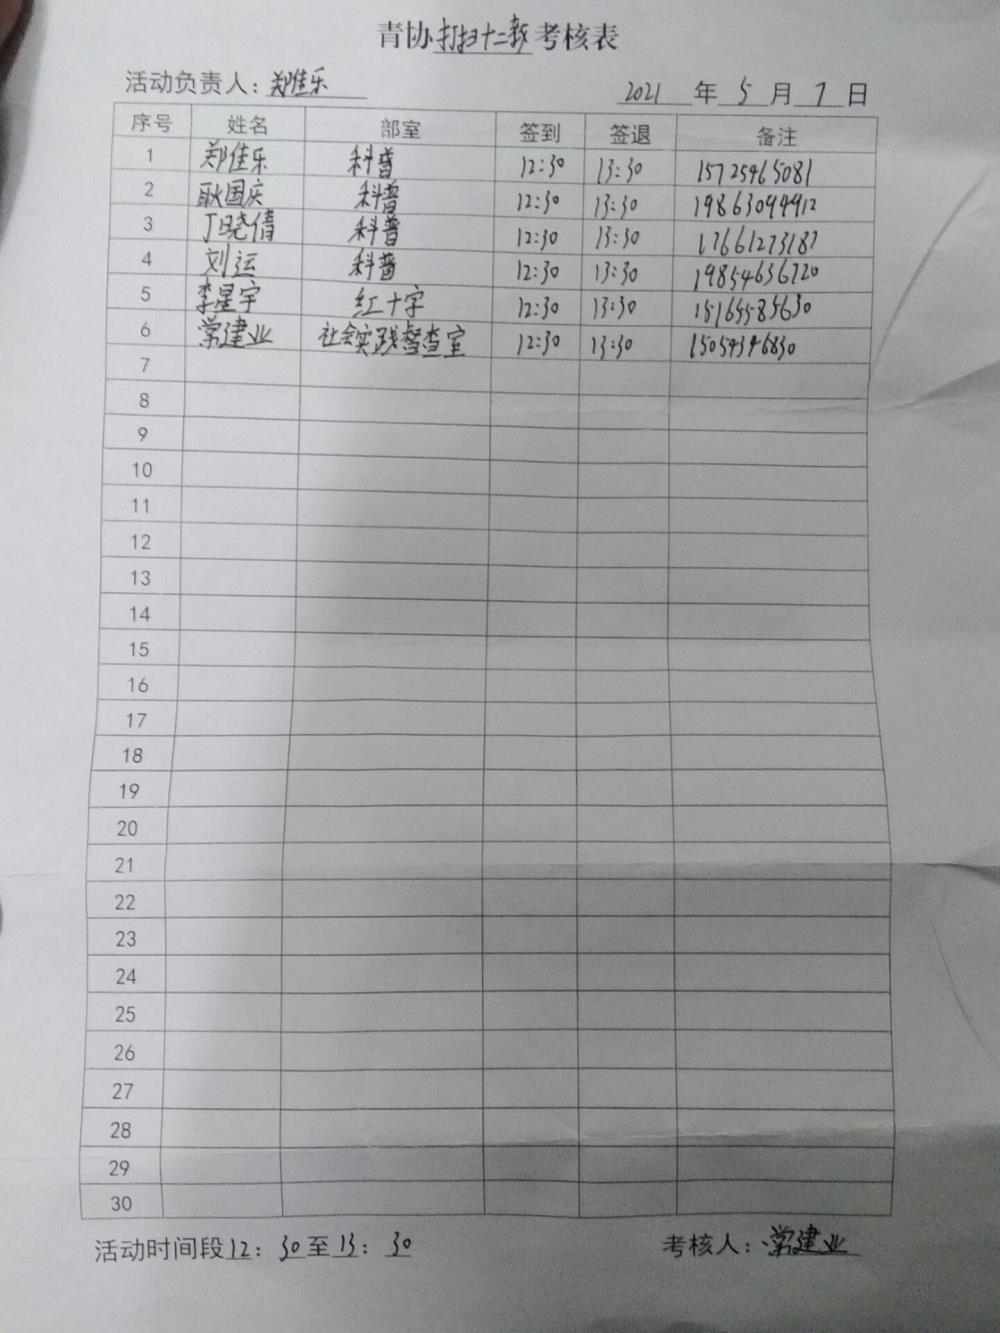 青协打扫十二教考核表
活动负责人：郑佳乐 2021 年 5 月 7 日
序号 姓名 部室 签到 签退 备注
1 郑佳乐 科普 12:30 13:30 15725465081
2 耿国庆 科普 12:30 13:30 19863094912
3 丁晓倩 科普 12:30 13:30 17661273187
4 刘运 科普 12:30 13:30 19854636720
5 李星宇 红十字 12:30 13:30 15165585630
6 常建业 社会实践督查室 12:30 13:30 15054346830
7
8
9
10
11
12
13
14
15
16
17
18
19
20
21
22
23
24
25
26
27
28
29
30
活动时间段12：30至13：30 考核人：常建业